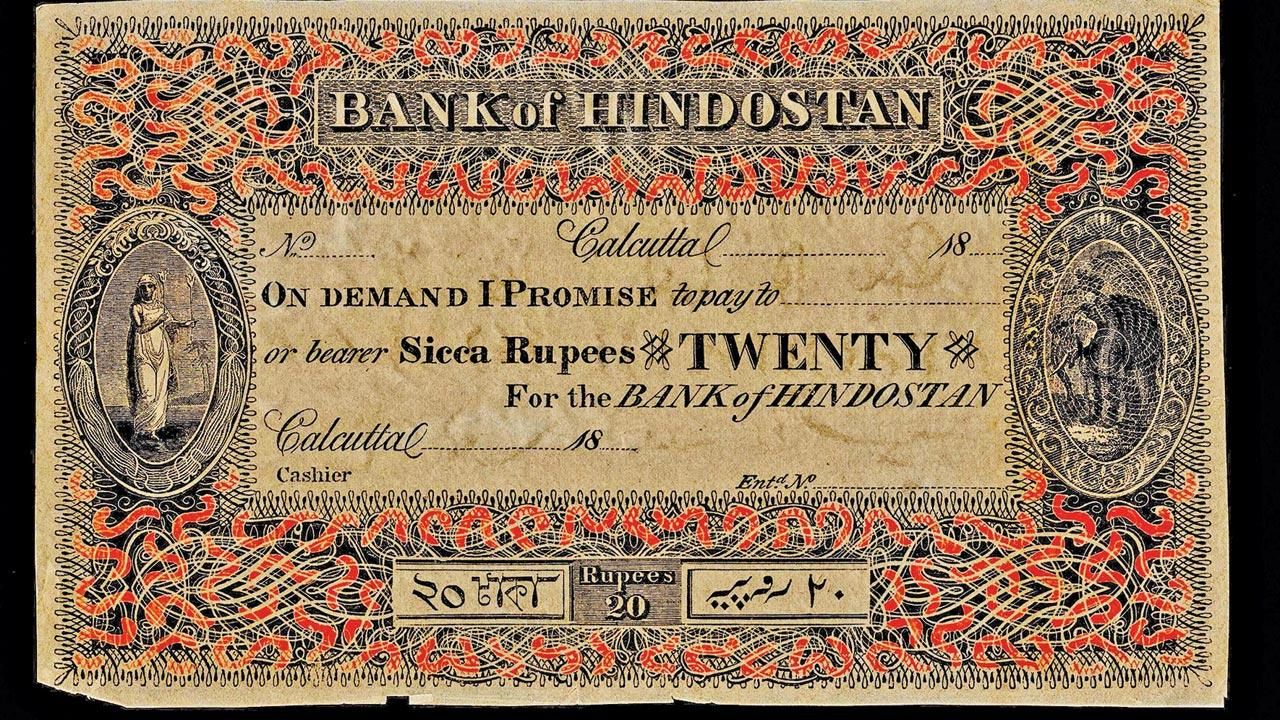 BANK of HINDOSTAN
No. Calcutta 18
ON DEMAND I PROMISE to pay to
or bearer Sicca Rupees TWENTY
For the BANK of HINDOSTAN
Calcutta 18
Cashier Entd. No
২০ টাকা Rupees 20 روپیہ ۲۰